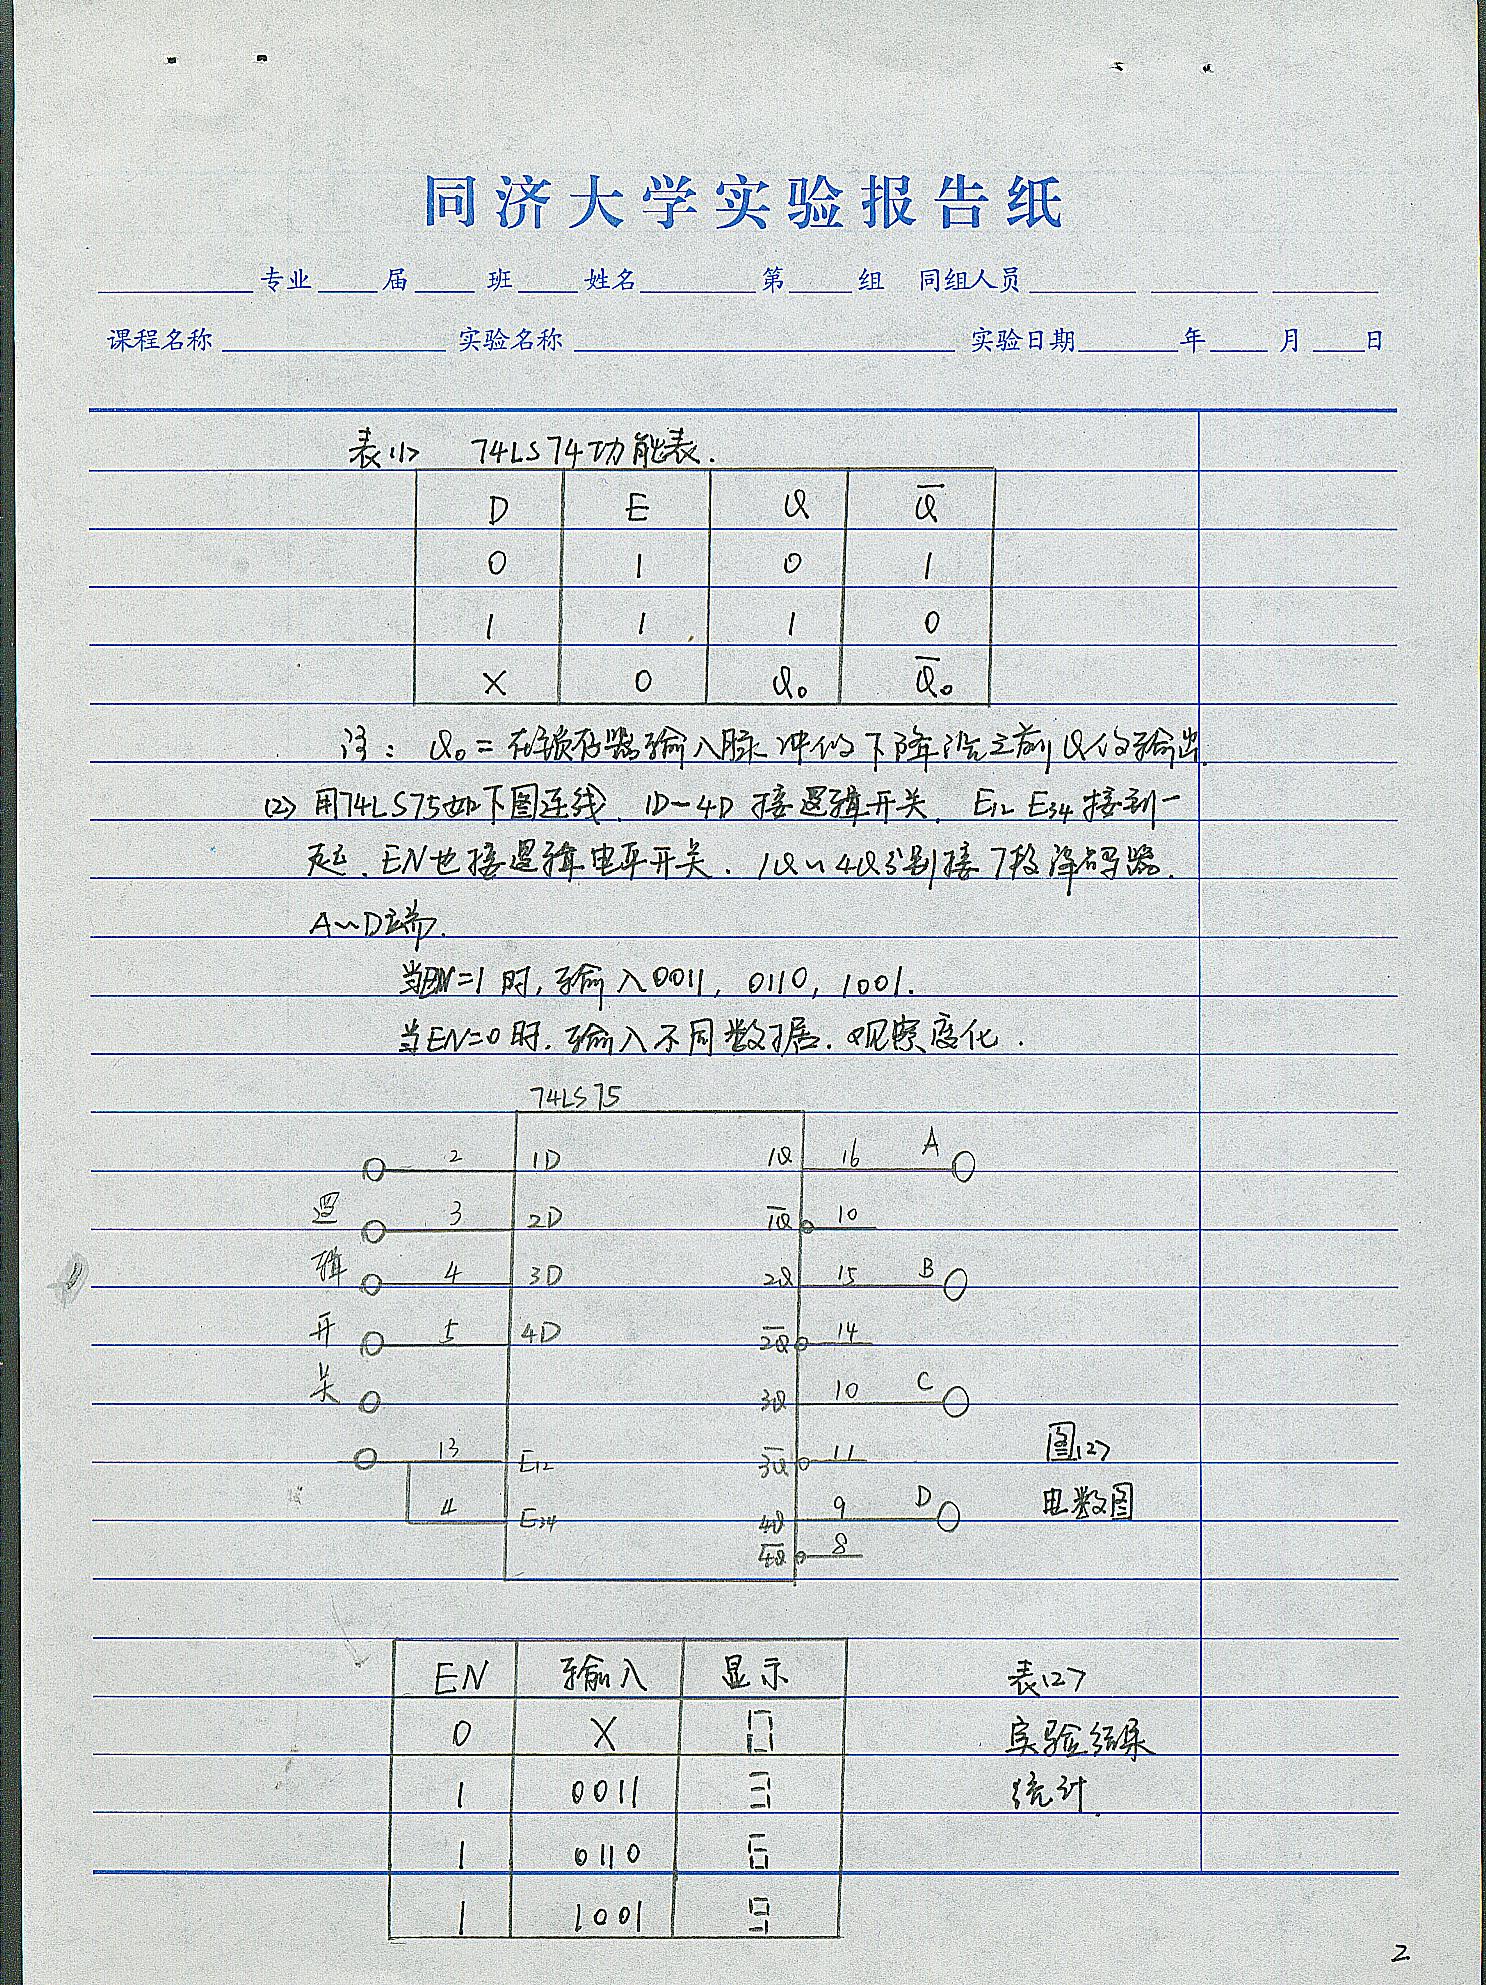 同济大学实验报告纸
专业 届 班 姓名 第 组 同组人员
课程名称 实验名称 实验日期 年 月 日
表(1) 74LS74功能表.
D E Q Q̅
0 1 0 1
1 1 1 0
X 0 Q₀ Q̅₀
注: Q₀=在锁存器输入脉冲的下降沿之前Q的输出.
(2) 用74LS75如下图连线. 1D-4D 接逻辑开关. E₁₂ E₃₄ 接到一
起. EN也接逻辑电平开关. 1Q~4Q分别接7段译码器.
A~D端.
当EN=1时, 输入0011, 0110, 1001.
当EN=0时. 输入不同数据. 观察变化.
74LS75
2 1D 1Q 16 A
3 2D 1Q̅ 10
4 3D 2Q 15 B
5 4D 2Q̅ 14
3Q 10 C
13 E₁₂ 3Q̅ 11
4 E₃₄ 4Q 9 D
4Q̅ 8
逻辑开关
图(2)
电数图
EN 输入 显示
0 X 0
1 0011 3
1 0110 6
1 1001 9
表(2)
实验结果
统计.
2